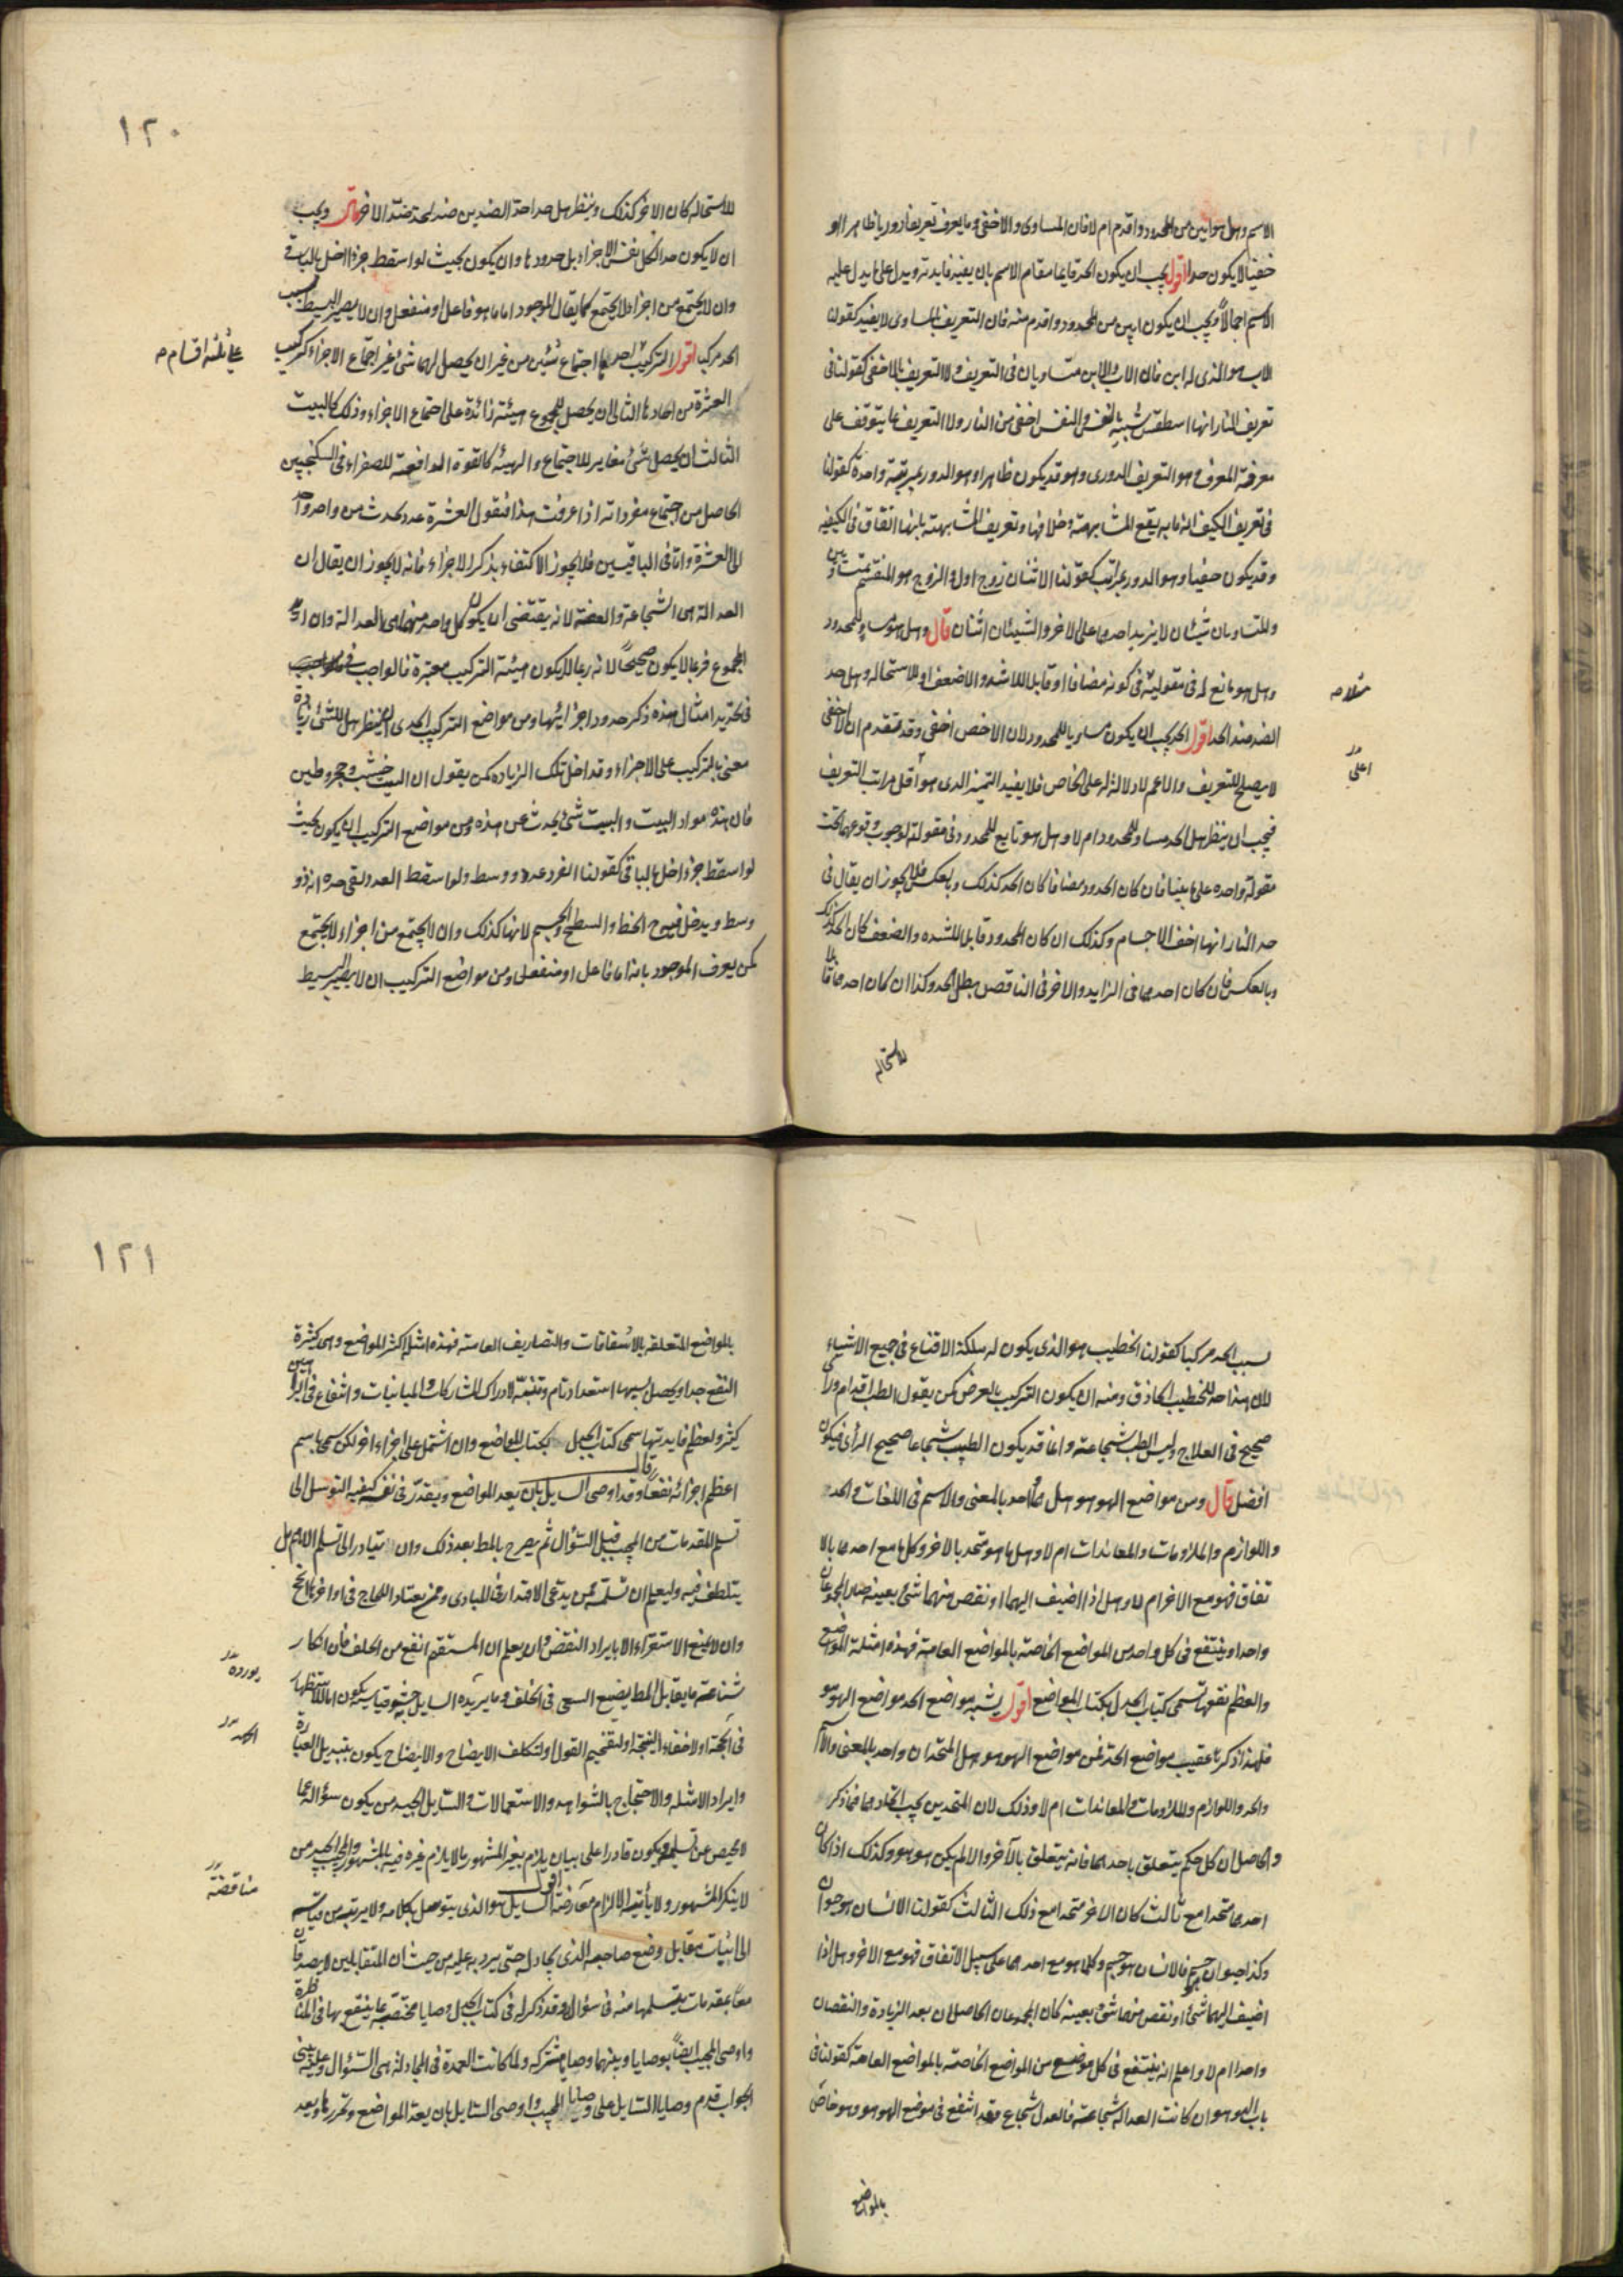 الاسم وهل هو ابين من المحدود واقدم ام لا فان المساوى والاخفى وما يعرف تعريفا دوريا ظاهرا او
خفيا لا يكون حدا اقول يجب ان يكون الحد قايما مقام الاسم بان يفيد فايدته ويدل على ما يدل عليه
الاسم اجمالا ويجب ان يكون ابين من المحدود واقدم منه فان التعريف بالمساوى لا يفيد كقولنا
الاب هو الذى له ابن فان الاب والابن متساويان فى التعريف ولا التعريف بالاخفى كقولنا فى
تعريف النار انها اسطقس شبيه بالنفس والنفس اخفى من النار ولا التعريف بما يتوقف على
معرفة المعرف وهو التعريف الدورى وهو قد يكون ظاهرا وهو الدور بمرتبة واحدة كقولنا
فى تعريف الكيف انه ما به يقع المشابهة وخلافها وتعريف المشابهة بانها اتفاق فى الكيفية
وقد يكون خفيا وهو الدور بمراتب كقولنا الاثنان زوج اول والزوج هو المنقسم بمتساويين
والمتساويان شيئان لا يزيد احدهما على الاخر والشيئان اثنان قال وهل هو مساو للمحدود
وهل هو مانع له فى مقوليته فى كونه مضافا او قابلا للاشد والاضعف او للاستحاله وهل حد
مثلا صه
الضد ضد الحد اقول الحد يجب ان يكون مساويا للمحدود لان الاخص اخفى وقد تقدم ان الاخفى
اعلى
لا يصلح للتعريف والاعم لا دلالة له على الخاص فلا يفيد التميز الذى هو اقل مراتب التعريف
فيجب ان ينظر هل الحد مساو للمحدود ام لا وهل هو تابع للمحدود فى مقولته لوجوب وقوعهما تحت
مقولة واحده على ما بينا فان كان المحدود مضافا كان الحد كذلك وبالعكس فلا يجوز ان يقال فى
حد النار انها اخف الاجسام وكذلك ان كان المحدود قابلا للشده والضعف كان الحد كذلك
وبالعكس فان كان احدهما فى الزايد والاخر فى الناقص بطل الحد وكذا ان كان احدهما قابلا
للاستحاله
١٢٠
للاستحاله كان الاخر كذلك وينظر هل حد احد الضدين ضد لحد ضد الاخر قال ويجب
ان لا يكون حد الكل نفس الاجزاء بل حدودها وان يكون بحيث لو اسقط جزء اخل بالباقى
وان لا يجتمع من اجزاء لا يجتمع كما يقال الموجود اما ما هو فاعل او منفعل وان لا يصير البسيط بسبب
الحد مركبا اقول التركيب احدها اجتماع شيئين من غير ان يحصل لهما شئ غير اجتماع الاجزاء كتركيب
على ثلثه اقسام صح
العشرة من احادها الثانى ان يحصل للمجموع هيئة زائدة على اجتماع الاجزاء وذلك كالبيت
الثالث ان يحصل شئ مغاير للاجتماع والهيئة كالقوة الدافعة للصفراء فى السكنجبين
الحاصل من اجتماع مفرداته اذا عرفت هذا فنقول العشرة عدد يحدث من واحد واحد
الى العشرة واما فى الباقيين فلا يجوز الاكتفاء بذكر الاجزاء فانه لا يجوز ان يقال ان
العدالة هى الشجاعة والعفة لانه يقتضى ان يكون كل واحد منهما هى العدالة وان اريد
المجموع فربما لا يكون صحيحا لانه ربما لا يكون هيئة التركيب معتبرة فالواجب
فى تحديد امثال هذه ذكر حدود اجزائها ومن مواضع التركيب الحدى ان ينظر هل للشئ زيادة
معنى بالتركيب على الاجزاء وقد اخل تلك الزيادة كمن يقول ان البيت خشب وحجر وطين
فان هذه مواد البيت والبيت شئ يحدث عن هذه ومن مواضع التركيب ان يكون بحيث
لو اسقط جزء اخل بالباقى كقولنا الفرد عدد ذو وسط ولو اسقط العدد بقى حده انه ذو
وسط ويدخل فيه الخط والسطح والجسم لانها كذلك وان لا يجتمع من اجزاء لا يجتمع
كمن يعرف الموجود بانه اما فاعل او منفعل ومن مواضع التركيب ان لا يصير البسيط
بسبب الحد مركبا كقولنا الخطيب هو الذى يكون له ملكة الاقناع فى جميع الاشياء
لان هذا حد للخطيب الحاذق ومنه ان يكون التركيب بالعرض كمن يقول الطب اقدام وراى
صحيح فى العلاج وليس الطب شجاعة وانما قد يكون الطبيب شجاعا صحيح الراى فيكون
افضل قال ومن مواضع الهو هو هل هما واحد بالمعنى والاسم فى اللغات والحد
واللوازم والملزومات والمعاندات ام لا وهل ما هو متحد بالاخر وكل ما مع احدهما بالا
تفاق فهو مع الاخر ام لا وهل اذا اضيف اليهما او نقص منهما شئ بعينه صار المجموعان
واحدا وينتفع فى كل واحد من المواضع الخاصة بالمواضع العامية فهذه امثلة المواضع
ولعظم نفعها تسمى كتاب الجدل بكتاب المواضع اقول يشبه مواضع الحد مواضع الهو هو
فلهذا ذكرها عقيب مواضع الحد فمن مواضع الهو هو هل المتحدان واحد بالمعنى والاسم
والحد واللوازم والملزومات والمعاندات ام لا وذلك لان المتحدين يجب اتحادهما فيما ذكر
والحاصل ان كل حكم يتعلق باحدهما فانه يتعلق بالآخر والا لم يكن هو هو وكذلك اذا كان
احدهما متحدا مع ثالث كان الاخر متحدا مع ذلك الثالث كقولنا الانسان هو حيوان
وكذا حيوان جسم فالانسان هو جسم وكلما هو مع احدهما على سبيل الاتفاق فهو مع الاخر وهل اذا
اضيف اليهما شئ او نقص منهما شئ بعينه كان المجموعان الحاصلان بعد الزيادة والنقصان
واحدا ام لا واعلم انه ينتفع فى كل موضع من المواضع الخاصة بالمواضع العامة كقولنا فى
باب الهو هو ان كانت العدالة شجاعة فالعدل شجاع وقد انتفع فى موضع الهو هو وهو خاص
بالمواضع
١٢١
بالمواضع المتعلقة بالاشتقاقات والتصاريف العامة فهذه امثلة اكثر المواضع وهى كثيرة
النفع جدا ويحصل بسببها استعداد تام وتنبه لادراك المشاركات والمباينات وانتفاع فى البراهين
كثير ولعظم فايدتها سمى كتاب الجدل بكتاب المواضع وان اشتمل على اجزاء اخر لكن سمى باسم
اعظم اجزائه نفعا قال وقد اوصى السايل بان يعد المواضع ويقدر فى نفسه كيفيه التوسل الى
تسلم المقدمات من المجيب قبل السؤال ثم يصرح بالمط بعد ذلك وان يتبادر الى تسلم الاهم بل
يتلطف فيه وليعلم ان تسلمه ممن يدعى الاقتدار فى المبادى وممن يعتاد اللجاج فى اواخرها انجح
وان لا يمنع الاستقراء الا بايراد النقض وان يعلم ان المستقيم انفع من الخلف فان انكار
شناعة ما يقابل المط يضيع السعى فى الخلف وما يريده السايل حشو قياسه يكون اما للاستظهار
يورده
فى الحجة او لاخفاء النتيجة او لتفخيم القول او لتكلف الايضاح والايضاح يكون بتبديل العبارة
وايراد الامثله والاحتجاج بالشواهد والاستعمالات والسايل الجيد من يكون سؤاله عما
لا محيص عن تسليمه ويكون قادرا على بيان ما يلزم بغير المشهور ما لا يلزم غيره فيه بالمشهور والمجيب الجيد من
لا ينكر المشهور ولا يأتيه الالزام معارضة اقول السايل هو الذى يتوصل بكلامه ولا يرتب من قياسه
مناقضة
الى اثبات مقابل وضع صاحبه الذى يجادل حتى يرد به عليه من حيث ان المتقابلين لا يصدقان
معا بمقدمات يتسلمها منه فى سؤال وقد ذكر له فى كتاب الجدل وصايا مختصة بما ينتفع بها فى المناظرة
واوصى المجيب ايضا بوصايا وبينهما وصايا مشتركه ولما كانت العمدة فى المجادلة هى السؤال وعليه يبتنى
الجواب قدم وصايا السايل على وصايا المجيب واوصى السايل بان يعد المواضع وتحررها ويعد